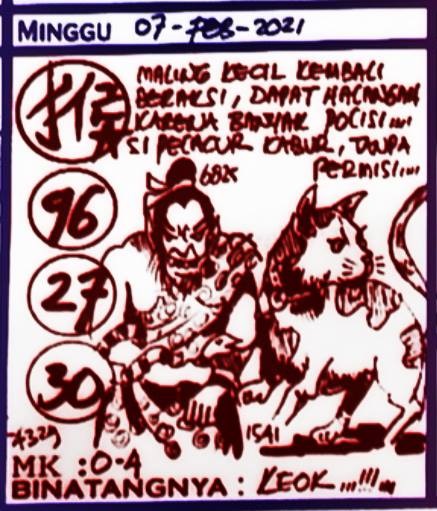 MINGGU 07-FEB-2021
MALING KECIL KEMBALI
BERAKSI, DAPAT HALANGAN
KARENA BANYAK POLISI....
SI PELACUR KABUR, TANPA
PERMISI....
96
27
30
1541
MK :0-4
BINATANGNYA : KEOK...!!!...